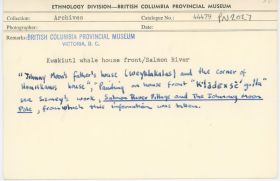 ETHNOLOGY DIVISION—BRITISH COLUMBIA PROVINCIAL MUSEUM
Collection: Archives Catalogue No.: 44479 PN2027
Photographer: Date:
Remarks: BRITISH COLUMBIA PROVINCIAL MUSEUM
VICTORIA, B. C.
Kwakiutl whale house front/Salmon River
"Johnny Moon's father's house and the corner of
house"; Painting on house front
see work, Salmon River Village and The Johnny Moon
Pole, from which this information was taken.